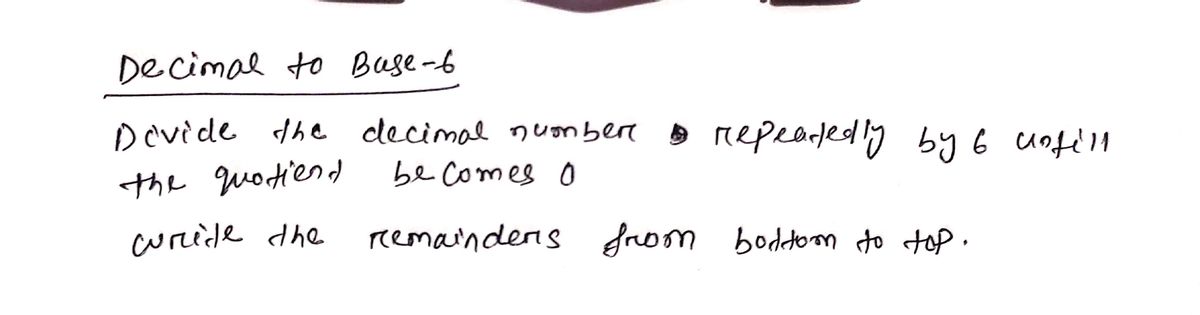 Decimal to Base-6
Divide the decimal number repeatedly by 6 untill
the quotient becomes 0
write the remainders from bottom to top.